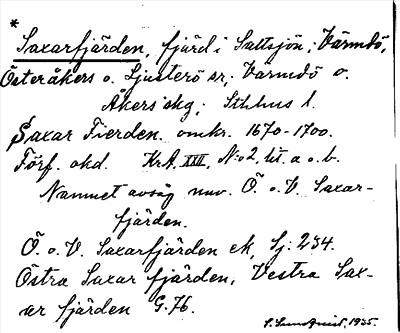 *
Saxarfjärden, fjärd i Saltsjön; Värmdö,
Österåkers o. Ljusterö sr; Värmdö o.
Åkers skg; Sthlms l.
Saxar Fierden omkr. 1670-1700.
Förf. okd. KrA XXII, N:o 2, lit. a o. b.
Namnet avsåg nuv. Ö. o. V. Saxar-
fjärden.
Ö. o. V. Saxarfjärden ek, Sj: 234.
Östra Saxar fjärden, Vestra Sax-
ar fjärden G. 76.
S. Sundquist, 1935.